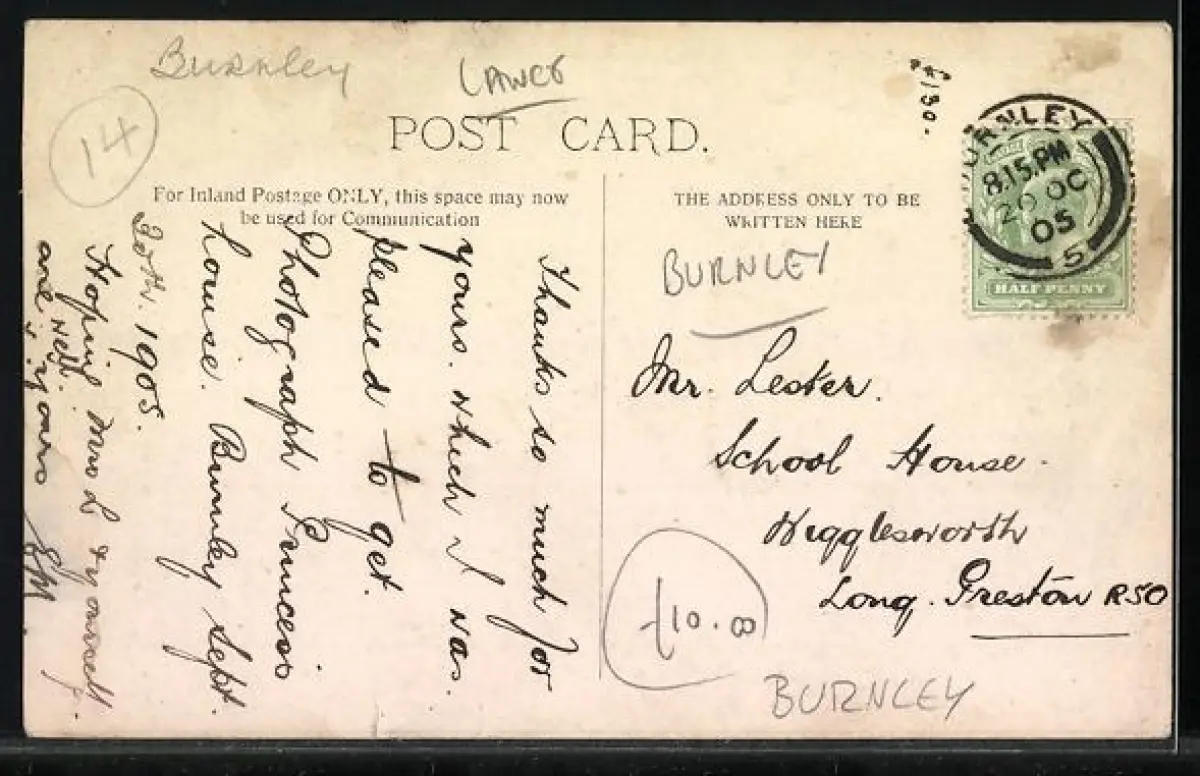 Burnley
LANCS
14
£130.
POST CARD.
For Inland Postage ONLY, this space may now
be used for Communication
THE ADDRESS ONLY TO BE
WRITTEN HERE
BURNLEY
8.15 PM
20 OC
05
5
HALF PENNY
BURNLEY
Mr. Lester.
School House.
Wigglesworth
Long. Preston RSO
£10.00
BURNLEY
Thanks so much for
yours. which I was.
pleased to get.
Photograph Princess
Louise. Burnley Sept.
20th. 1905.
Hoping Mrs L & yourself.
are well.
yours EM.